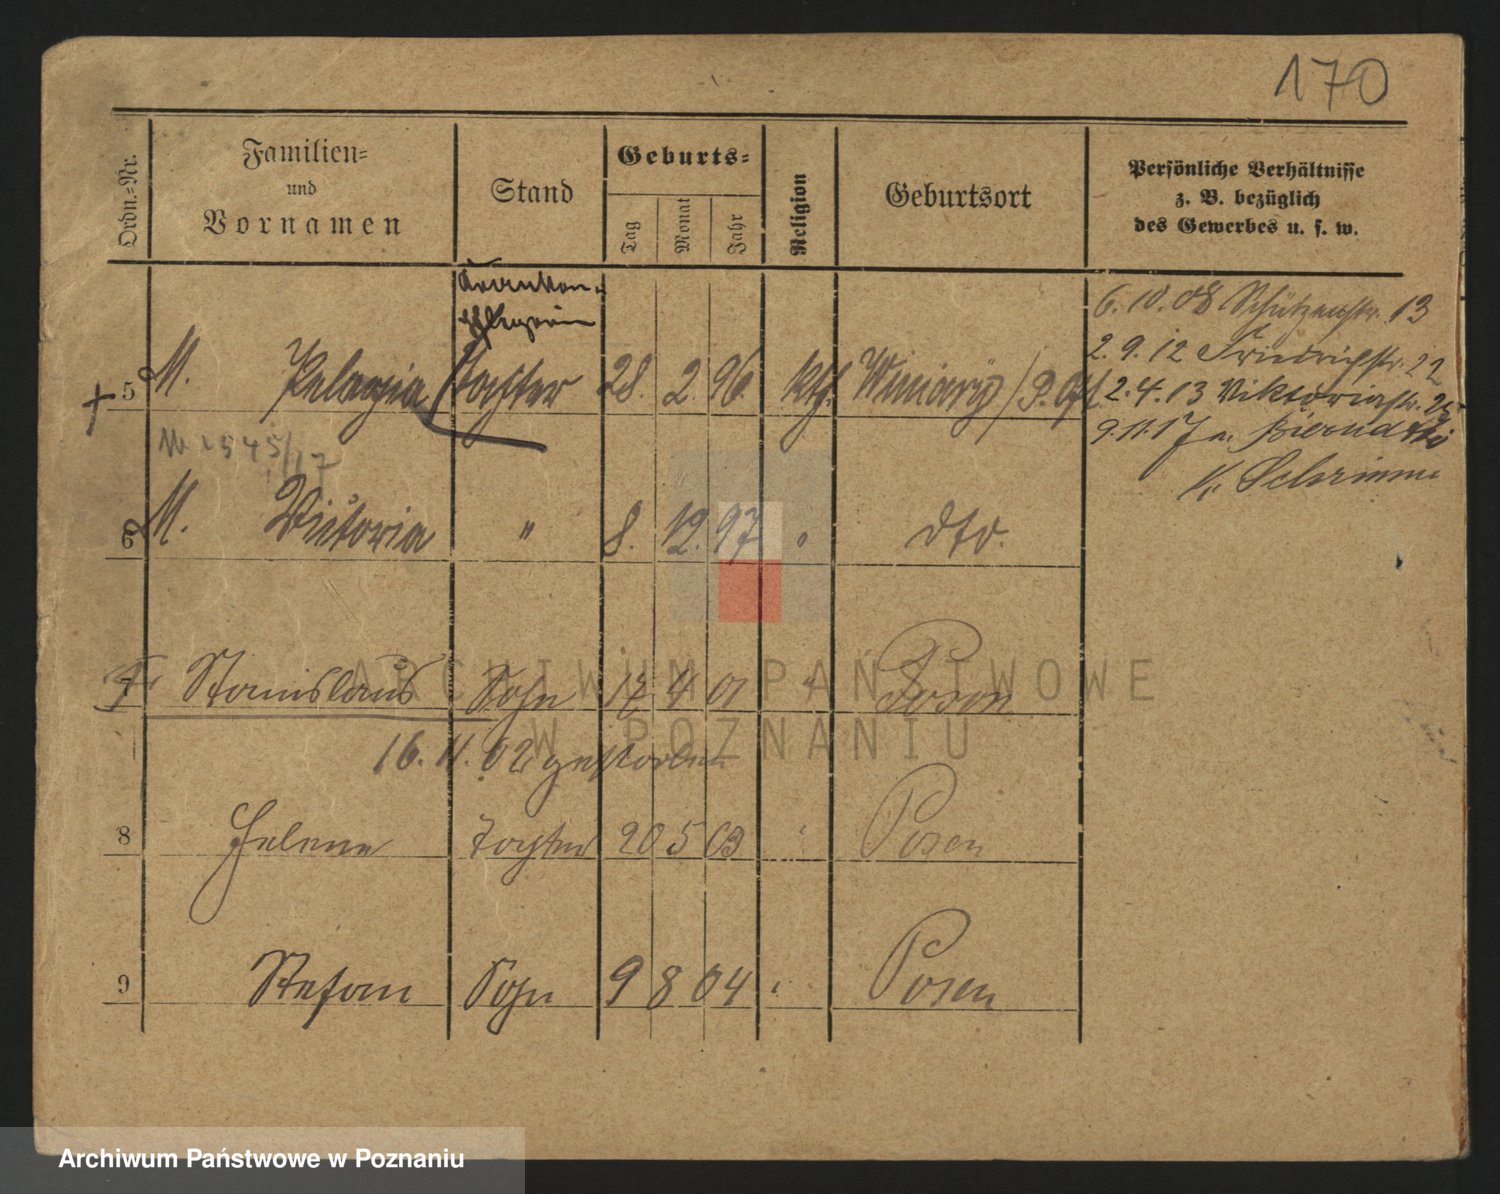 170
Ordn.-Nr.
Familien-
und
Vornamen
Stand
Geburts-
Tag
Monat
Jahr
Religion
Geburtsort
Persönliche Verhältnisse
z. B. bezüglich
des Gewerbes u. s. w.
Kranken-
pflegerin
5 M. Pelagia Tochter 28. 2. 96. kth. Winiary
6.10.08 Schützenstr. 13
2.9.12 Friedrichstr. 22
2.4.13 Viktoriastr. 25
9.11.17 n.
K. Schrimm
2545/17
6 M. Victoria " 8. 12. 97 " dto.
7 Stanislaus Sohn 17 4 01 " Posen
16.11.02 gestorben
8 Helene Tochter 20 5 03 " Posen
9 Stefan Sohn 9 8 04 " Posen
ARCHIWUM PAŃSTWOWE
W POZNANIU
Archiwum Państwowe w Poznaniu